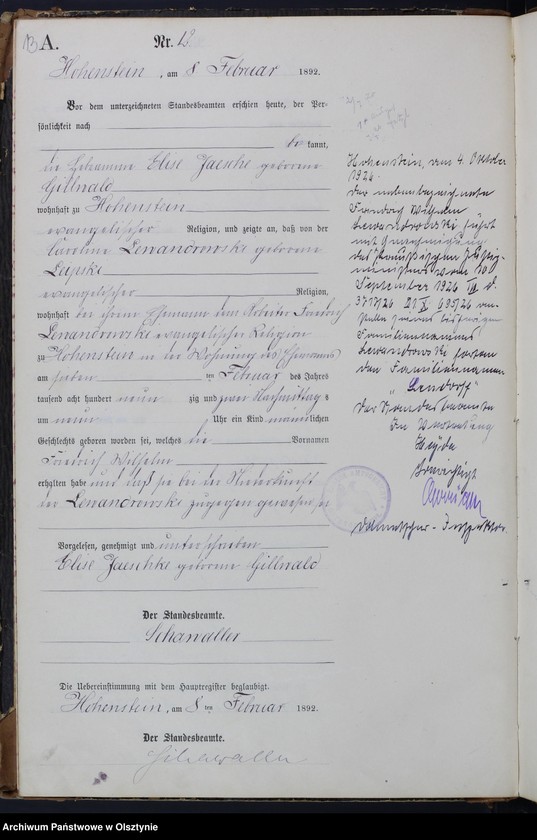 13 A.
Nr. 13.
Hohenstein, am 8 Februar 1892.
Vor dem unterzeichneten Standesbeamten erschien heute, der Per-
sönlichkeit nach
be kannt,
die Hebamme Elise Jaeschke geborene
Gillwald
wohnhaft zu Hohenstein
evangelischer Religion, und zeigte an, daß von der
Caroline Lewandrowski geborene
Lapske
evangelischer Religion,
wohnhaft bei ihrem Ehemann dem Arbeiter Friedrich
Lewandrowski evangelischer Religion
zu Hohenstein in der Wohnung des Ehemanns
am sieben ten Februar des Jahres
tausend acht hundert neun zig und zwei Nachmittag s
um neun Uhr ein Kind männlichen
Geschlechts geboren worden sei, welches die Vornamen
Friedrich Wilhelm
erhalten habe und daß sie bei der Niederkunft
der Lewandrowski zugegen gewesen sei
Vorgelesen, genehmigt und unterschrieben
Elise Jaeschke geborene Gillwald
Der Standesbeamte.
Schawaller
Die Uebereinstimmung mit dem Hauptregister beglaubigt.
Hohenstein, am 8 ten Februar 1892.
Der Standesbeamte.
Schawaller
Hohenstein, den 4. Oktober
1926.
Der nebenbezeichnete
Friedrich Wilhelm
Lewandrowski führt
mit Genehmigung
des Preußischen Justiz-
ministers vom 10.
September 1926
an
Stelle seines bisherigen
Familiennamens
Lewandrowski fortan
den Familiennamen
„Lendorff"
Der Standesbeamte
In Vertretung
Heyda
Berichtigt
Archiwum Państwowe w Olsztynie